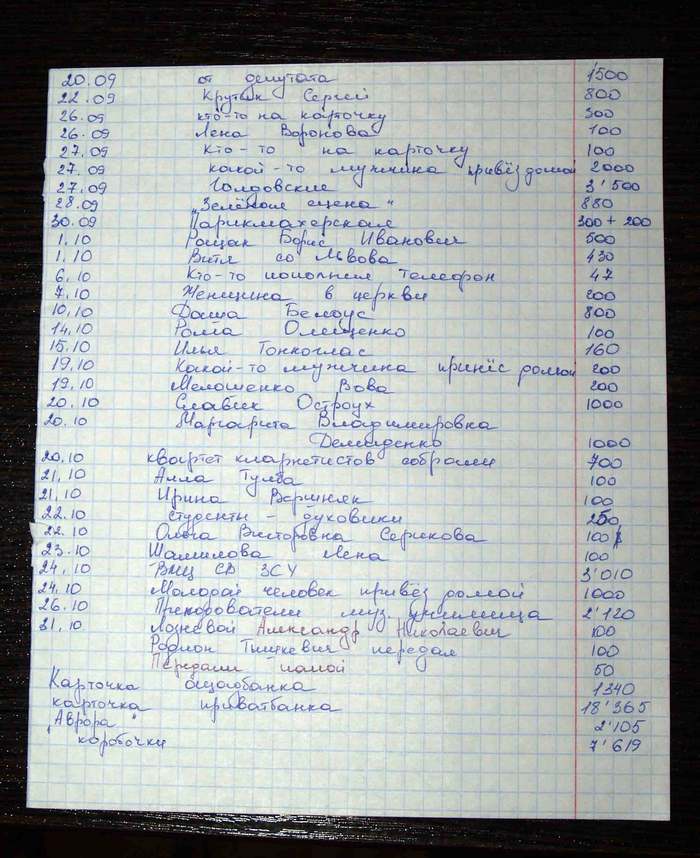 20.09 от депутата 1500
22.09 Крутык Сергей 800
26.09 кто-то на карточку 300
26.09 Лена Воронова 100
27.09 Кто-то на карточку 100
27.09 какой-то мужчина привёз домой 2000
27.09 Голдовские 3'500
28.09 „Зелёная сцена" 880
30.09 Парикмахерская 300 + 200
1.10 Рощак Борис Иванович 500
1.10 Витя со Львова 430
6.10 Кто-то пополнил телефон 47
7.10 Женщина в церкви 200
10.10 Даша Белоус 800
14.10 Рома Онищенко 100
15.10 Илья Тонкоглас 160
19.10 Какой-то мужчина принёс домой 200
19.10 Мелошенко Вова 200
20.10 Славик Остроух 1000
20.10 Маргарита Владимировна
Демиденко 1000
20.10 квартет кларнетистов собрали 700
21.10 Алла Тумба 100
21.10 Ирина Вершняк 100
22.10 студенты - духовики 250
22.10 Ольга Викторовна Серикова 100
23.10 Шамилова Лена 100
24.10 ВМЦ СВ ЗСУ 3'010
24.10 Молодой человек привёз домой 1000
26.10 Преподователи муз. училища 2'120
31.10 Лозневой Александр Николаевич 100
Родион Тишкевич передал 100
Передали домой 50
Карточка ощадбанка 1340
карточка приватбанка 18'365
"Аврора" 2'105
коробочки 7'619